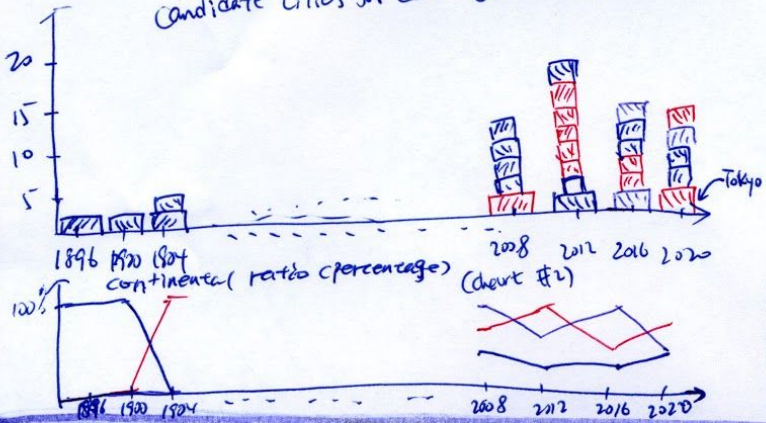 Candidate Cities
20
15
10
5
Tokyo
1896 1900 1904 2008 2012 2016 2020
continental ratio (percentage) (chart #2)
100%
1896 1900 1904 2008 2012 2016 2020